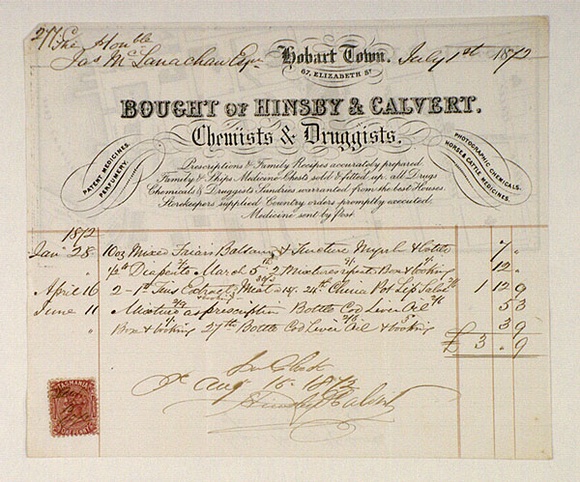 277 The Honble
Jas McLanachan Esqr
Hobart Town. July 1st 1872
67, ELIZABETH ST
BOUGHT OF HINSBY & CALVERT.
Chemists & Druggists.
PATENT MEDICINES.
PERFUMERY.
PHOTOGRAPHIC CHEMICALS.
HORSE & CATTLE MEDICINES.
Prescriptions & Family Recipes accurately prepared.
Family & Ships Medicine Chests sold & fitted up, all Drugs
Chemicals & Druggists Sundries warranted from the best Houses.
Storekeepers supplied Country orders promptly executed.
Medicine sent by post.
1872
Jan 28 10oz Mixed Friars Balsam & Tincture Myrrh & Bottle 7 "
" March 5th 2 Mixtures Box & booking 12 "
April 16 2 - Extract Meat 24th China Pot Lip Salve 1 12 9
June 11 Mixture as prescription 2/9 Bottle Cod Liver Oil 2/6 5 3
" Box & booking 27th Bottle Cod Liver Oil & booking 3 9
£ 3 . 9
Aug 15. 1872
Hinsby & Calvert
TASMANIA